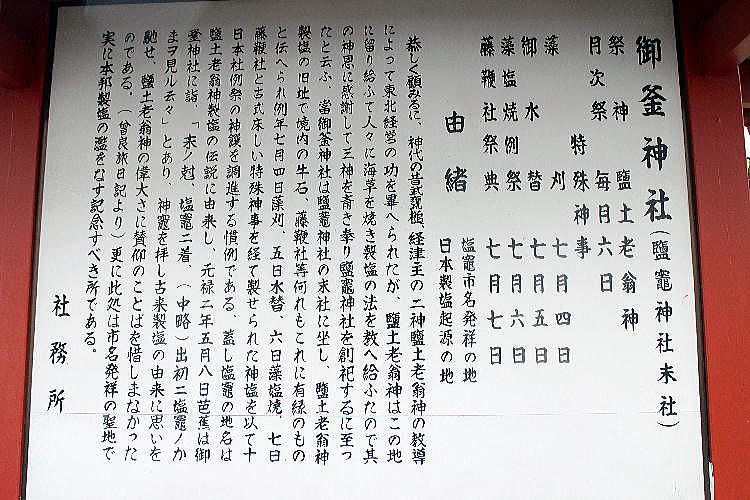 御釜神社(鹽竈神社末社)
祭神 鹽土老翁神
月次祭 毎月六日
特殊神事
藻刈 七月四日
御水替 七月五日
藻塩焼例祭 七月六日
藤鞭社祭典 七月七日
由緒
塩竈市名発祥の地
日本製塩起源の地
恭しく顧みるに、神代の昔武甕槌経津主の二神鹽土老翁神の教導
によって東北経営の功を畢へられたが、鹽土老翁神はこの地
に留り給ふて人々に海草を焼き製塩の法を教へ給ふたので其
の神恩に感謝して三神を斎き奉り鹽竈神社を創祀するに至つ
たと云ふ、當御釜神社は鹽竈神社の末社に坐し、鹽土老翁神
製塩の旧址で境内の牛石、藤鞭社等何れもこれに有縁のもの
と伝へられ例年七月四日藻刈、五日水替、六日藻塩焼、七日
藤鞭社と古式床しい特殊神事を経て製せられた神塩を以て十
日本社例祭の神饌を調進する慣例である、蓋し塩竈の地名は
鹽土老翁神製塩の伝説に由来し、元禄二年五月八日芭蕉は御
釜神社に詣「末ノ尅、塩竈ニ着、(中略)出初ニ塩竈ノか
まヲ見ル云々」とあり、神竈を拝し古来製塩の由来に思いを
馳せ、鹽土老翁神の偉大さに賛仰のことばを惜しまなかった
のである。(曾良旅日記より)更に此処は市名発祥の聖地で
実に本邦製塩の濫をなす記念すべき所である。
社務所